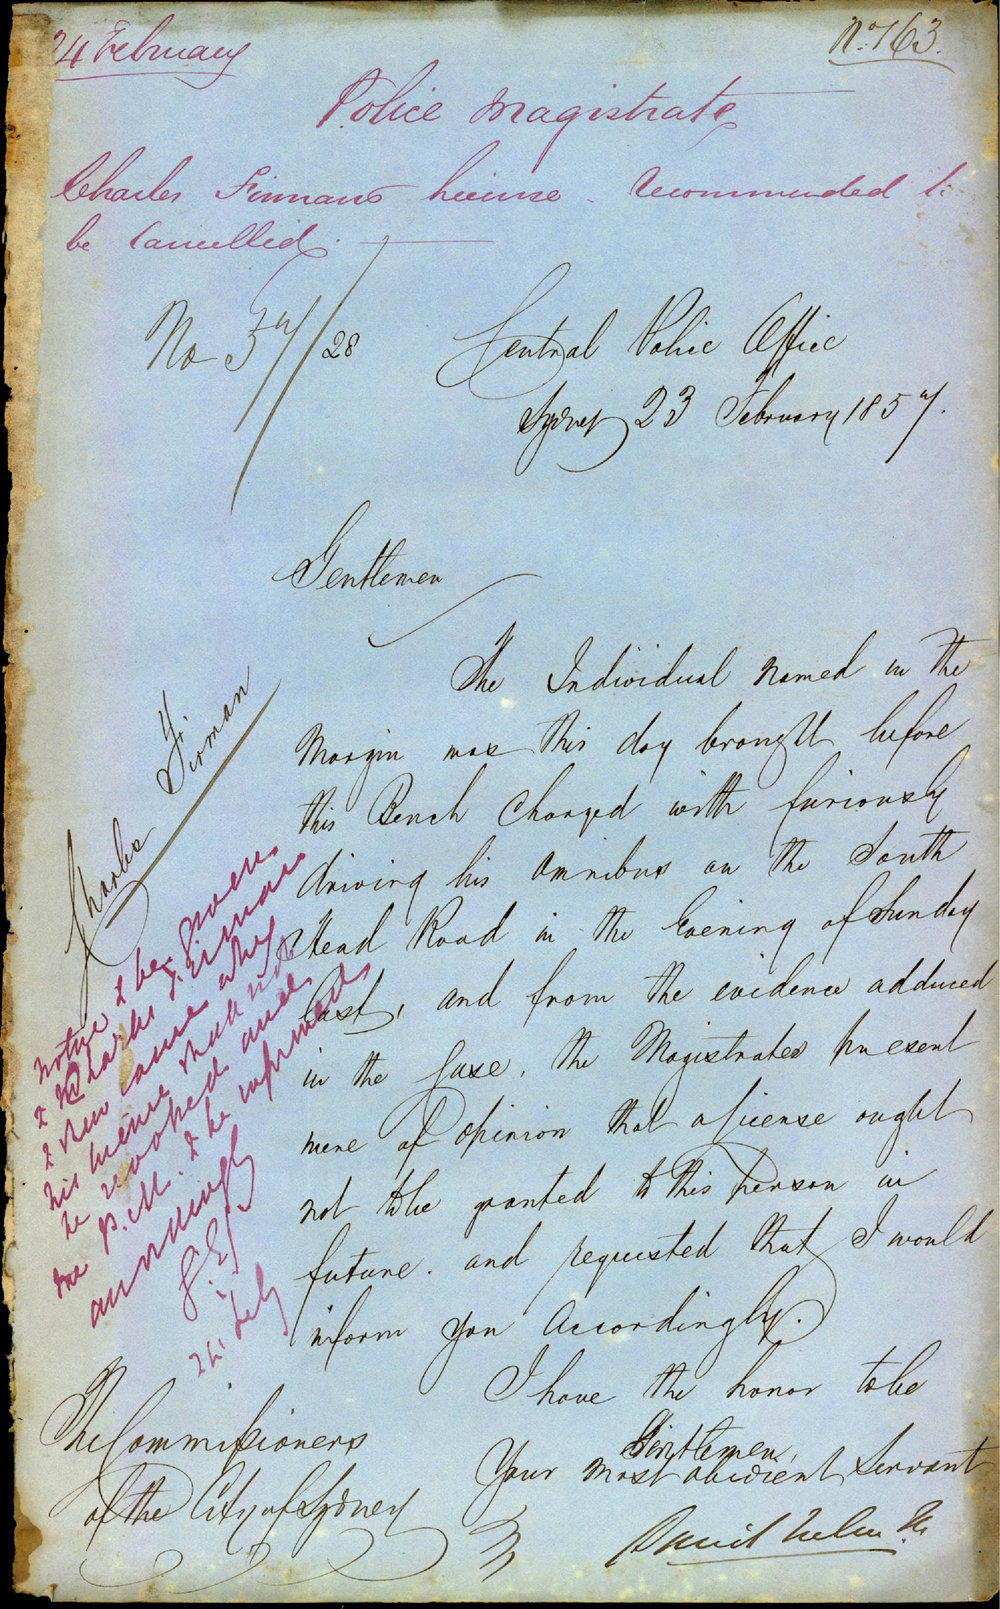 24 February
No. 163.
Police Magistrate
Charles Firmans license recommended to
be Cancelled.
No 57/28
Central Police Office
Sydney 23 February 1857.
Gentlemen
The Individual named in the
Margin was this day brought before
this Bench Charged with furiously
driving his omnibus on the South
Head Road in the Evening of Sunday
last, and from the evidence adduced
in the Case, the Magistrates present
were of opinion that a license ought
not to be granted to this person in
future. and requested that I would
inform you Accordingly.
I have the honor to be
Gentlemen,
Your most obedient Servant
Charles Firman
Notice to be given
to Charles Firman
to shew cause why
his license shall not
be revoked and
the P.M. to be informed
accordingly
24 Feby
The Commissioners
of the City of Sydney
David